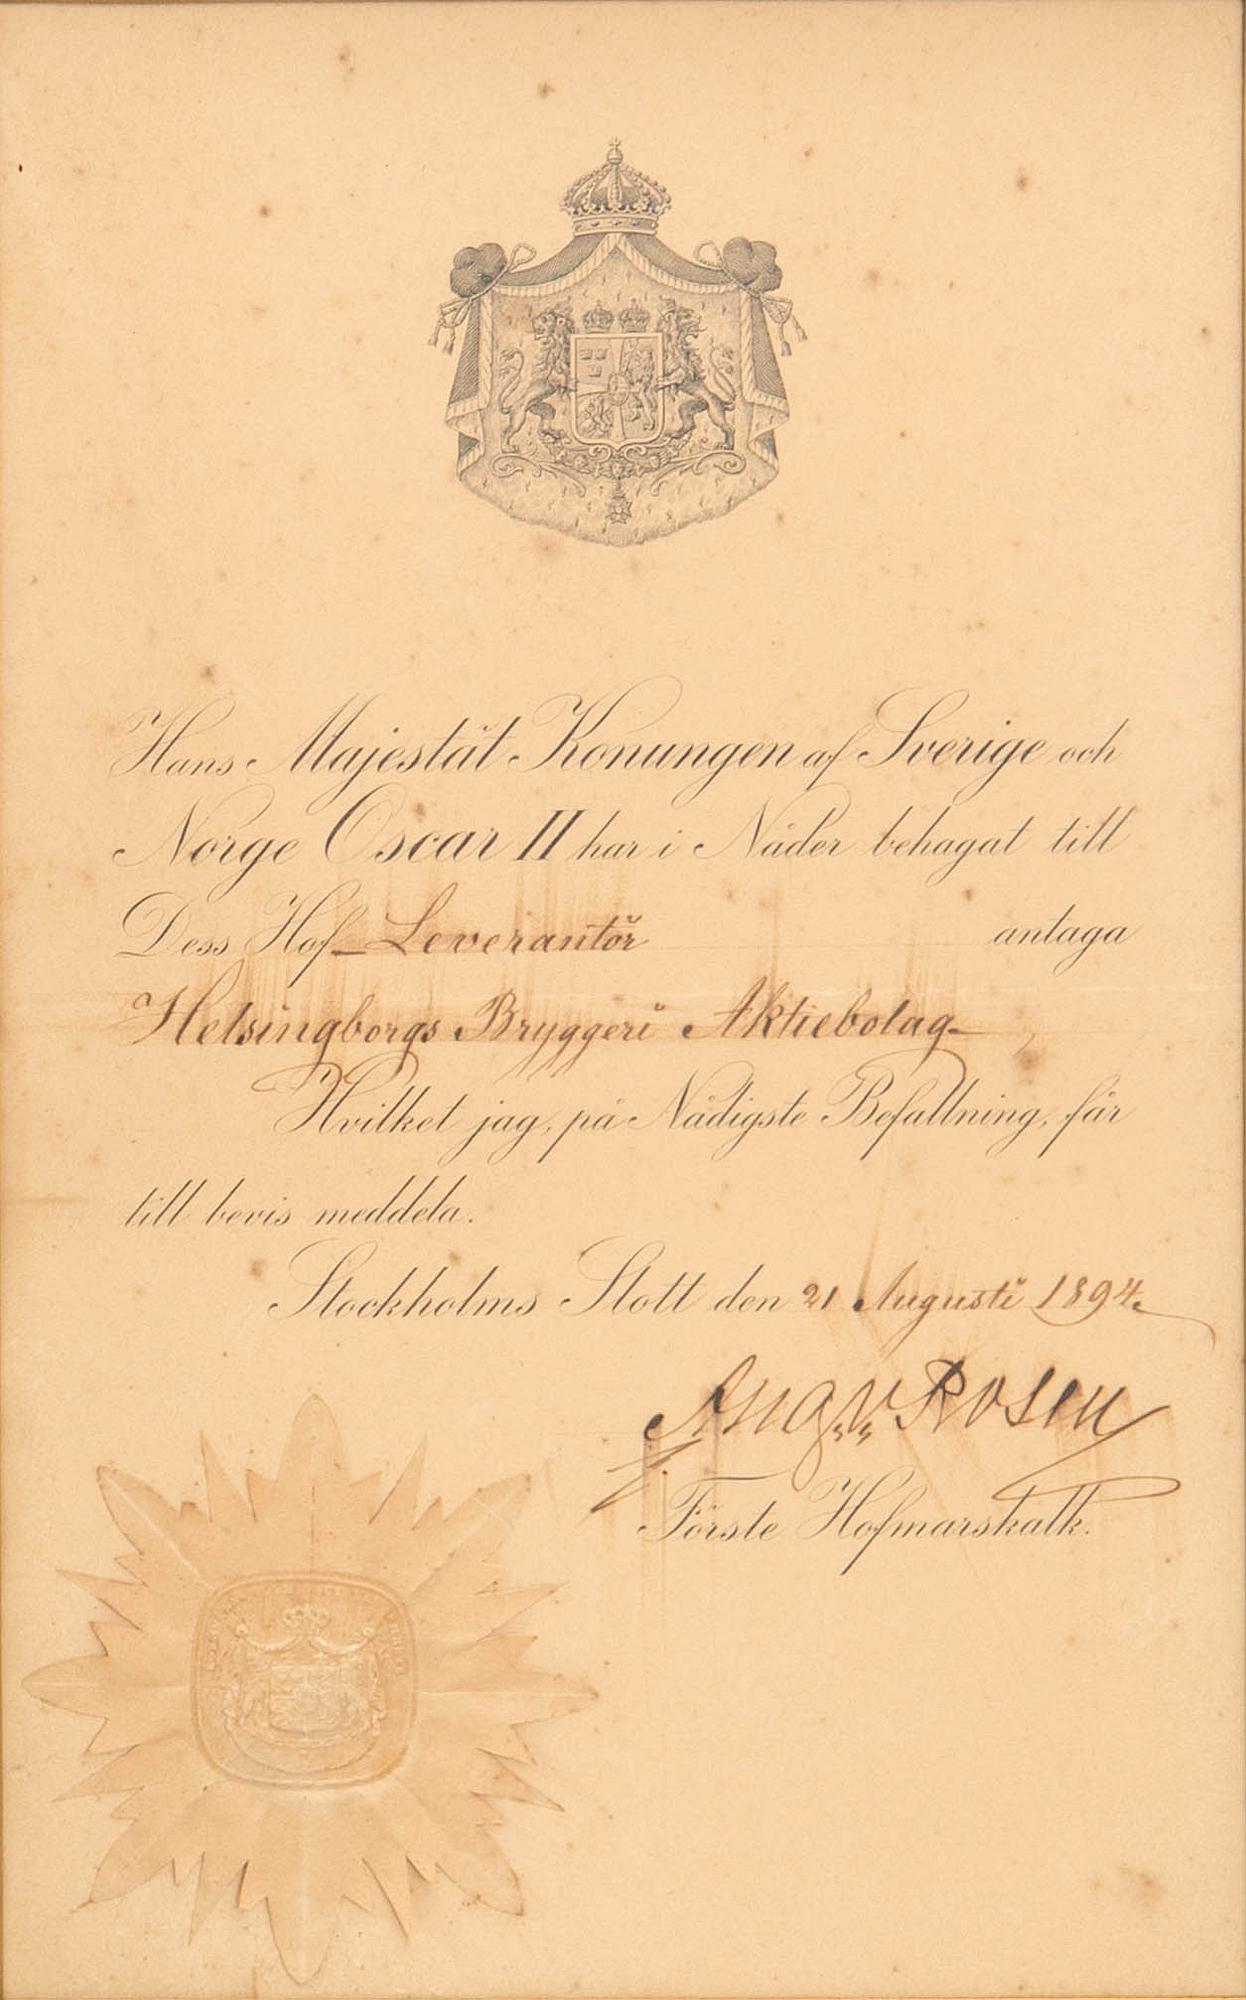 Hans Majestät Konungen af Sverige och
Norge Oscar II har i Nåder behagat till
Dess Hof-Leverantör antaga
Helsingborgs Bryggeri Aktiebolag
Hvilket jag, på Nådigste Befallning, får
till bevis meddela.
Stockholms Slott den 21 Augusti 1894.
Rosen
Förste Hofmarskalk.